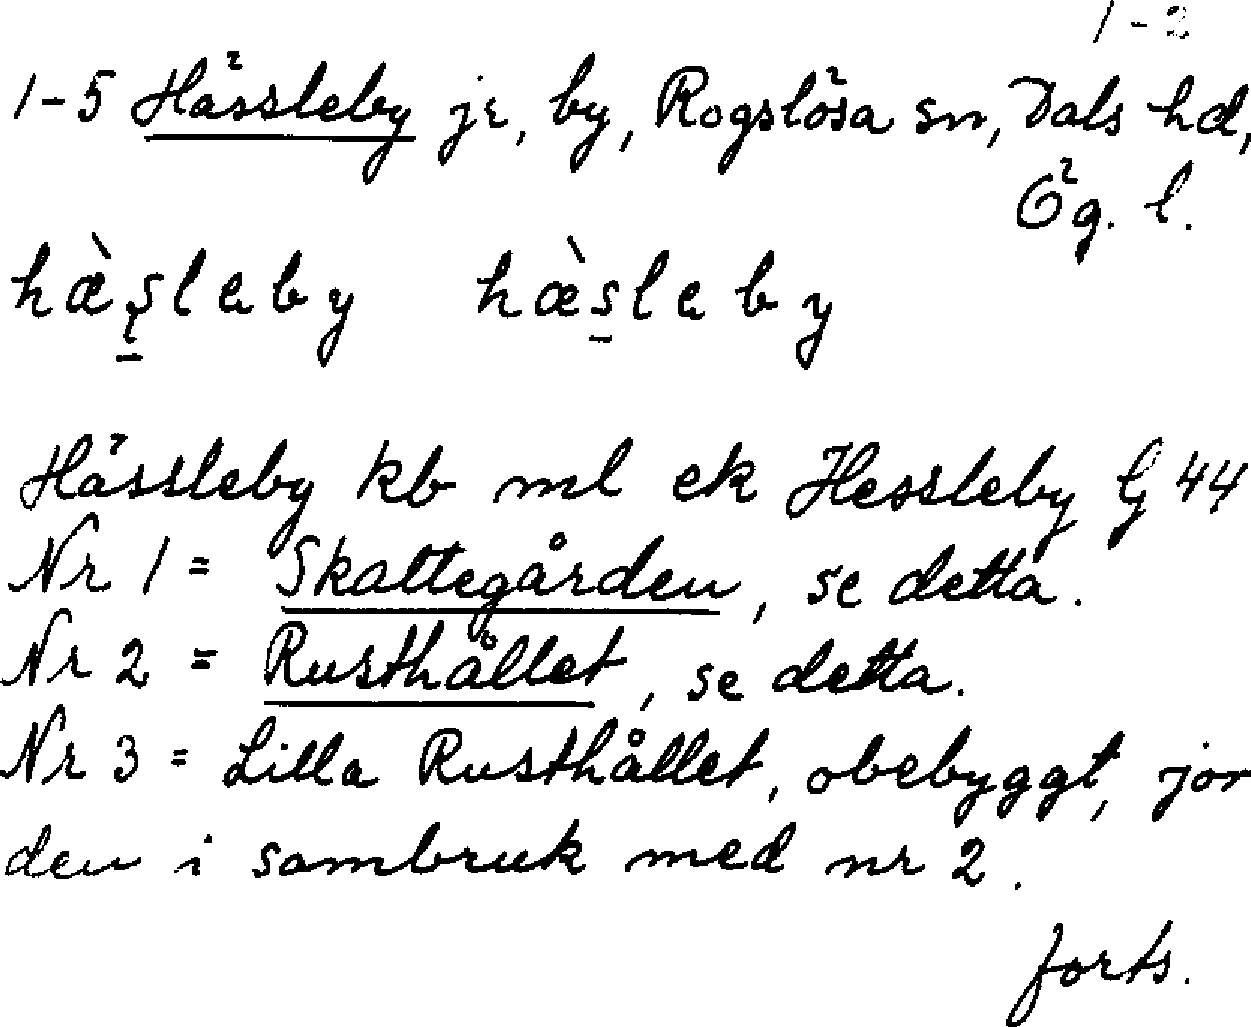 1-2
1-5 Hässleby jr, by, Rogslösa sn, Dals hd,
Ög. l.
hæ̀s̱leby hæ̀s̱leby
Hässleby kb ml ek Hessleby G 44
Nr 1 = Skattegården, se detta.
Nr 2 = Rusthållet, se detta.
Nr 3 = Lilla Rusthållet, obebyggt, jor
den i sambruk med nr 2.
forts.